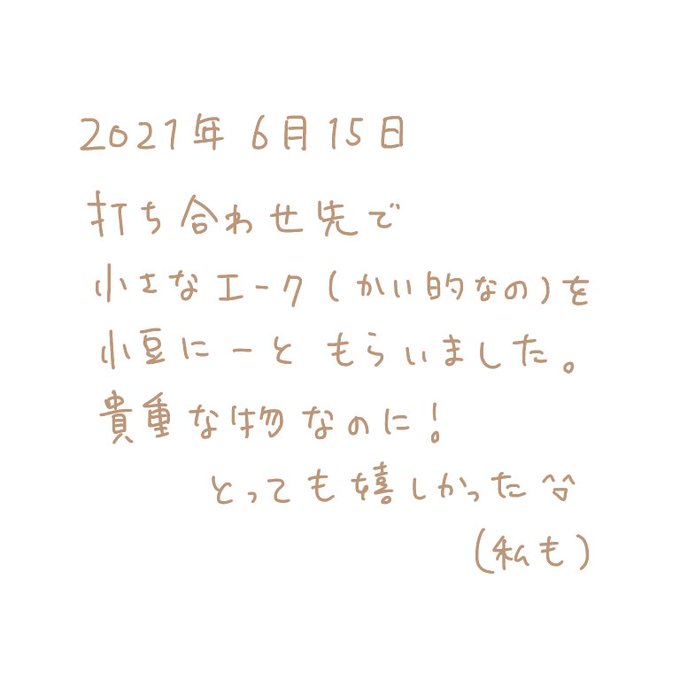 2021年6月15日
打ち合わせ先で
小さなエーク(かい的なの)を
小豆にーと もらいました。
貴重な物なのに!
とっても嬉しかった^^
(私も)